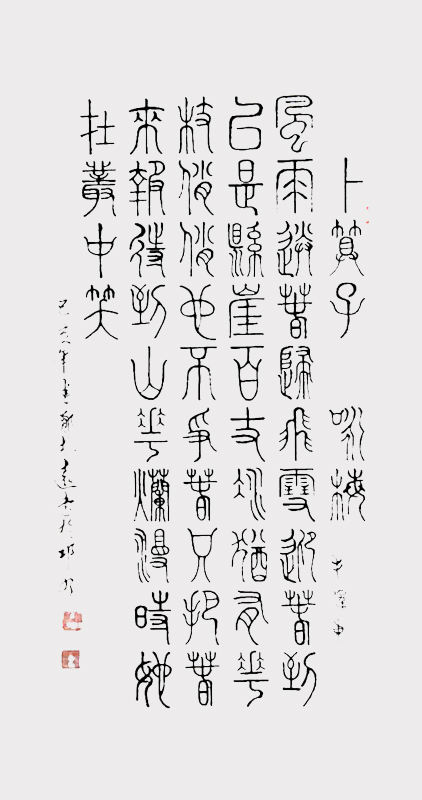 卜算子 咏梅
風雨送春歸飛雪迎春到
已是縣崖百丈冰猶有華
枝俏俏也不爭春只把春
來報待到山華爛漫時她
在叢中笑
己亥年